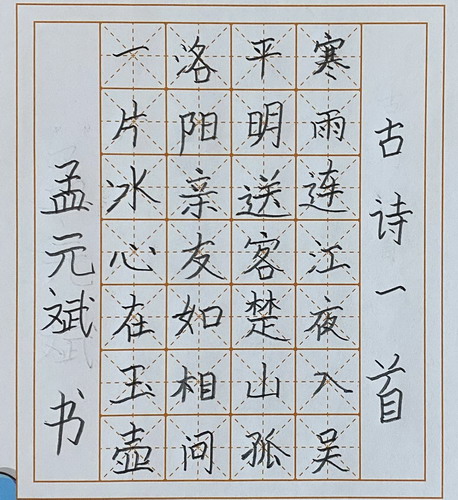 古诗一首
寒雨连江夜入吴
平明送客楚山孤
洛阳亲友如相问
一片冰心在玉壶
孟元斌书